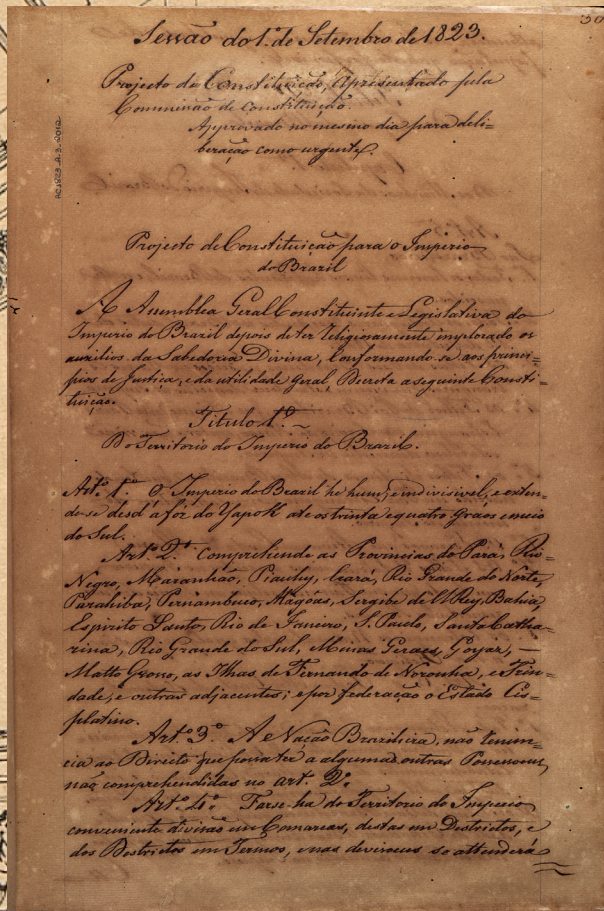 30
Sessão do 1º de Setembro de 1823.
Projecto de Constituição, apresentado pela
Commissão de constituição.
Approvado no mesmo dia para deli-
beração como urgente.
AC1823.A.3.
Projecto de Constituição para o Imperio
do Brazil
A Assemblea Geral Constituinte e Legislativa do
Imperio do Brazil depois de ter religiosamente implorado os
auxilios da Sabedoria Divina, conformando-se aos princi-
pios de Justiça, e da utilidade geral, Decreta a seguinte Consti-
tuição.
Titulo 1º
Do Territorio do Imperio do Brazil.
Artº 1º O Imperio do Brazil he hum, e indivisivel, e exten-
de-se desd'a fóz do Yapok até os trinta e quatro gráos e meio
do Sul.
Artº 2º Comprehende as Provincias do Pará, Rio
Negro, Maranhão, Piauhy, Ceará, Rio Grande do Norte,
Parahiba, Pernambuco, Alagôas, Sergibe de El Rey, Bahia,
Espirito Santo, Rio de Janeiro, S. Paulo, Santa Catha-
rina, Rio Grande do Sul, Minas Geraes, Goyaz, —
Matto Grosso, as Ilhas de Fernando de Noronha, e Trin-
dade, e outras adjacentes; e por federação o Estado Cis-
platino.
Artº 3º A Nação Brazileira, não renun-
cia ao Direito que possa ter a algumas outras Possessoens,
não comprehendidas no art. 2º
Artº 4º Far-se-ha do Territorio do Imperio
conveniente divisão em Comarcas, destas em Destrictos, e
dos Destrictos em Termos, e nas divisoens se attenderá